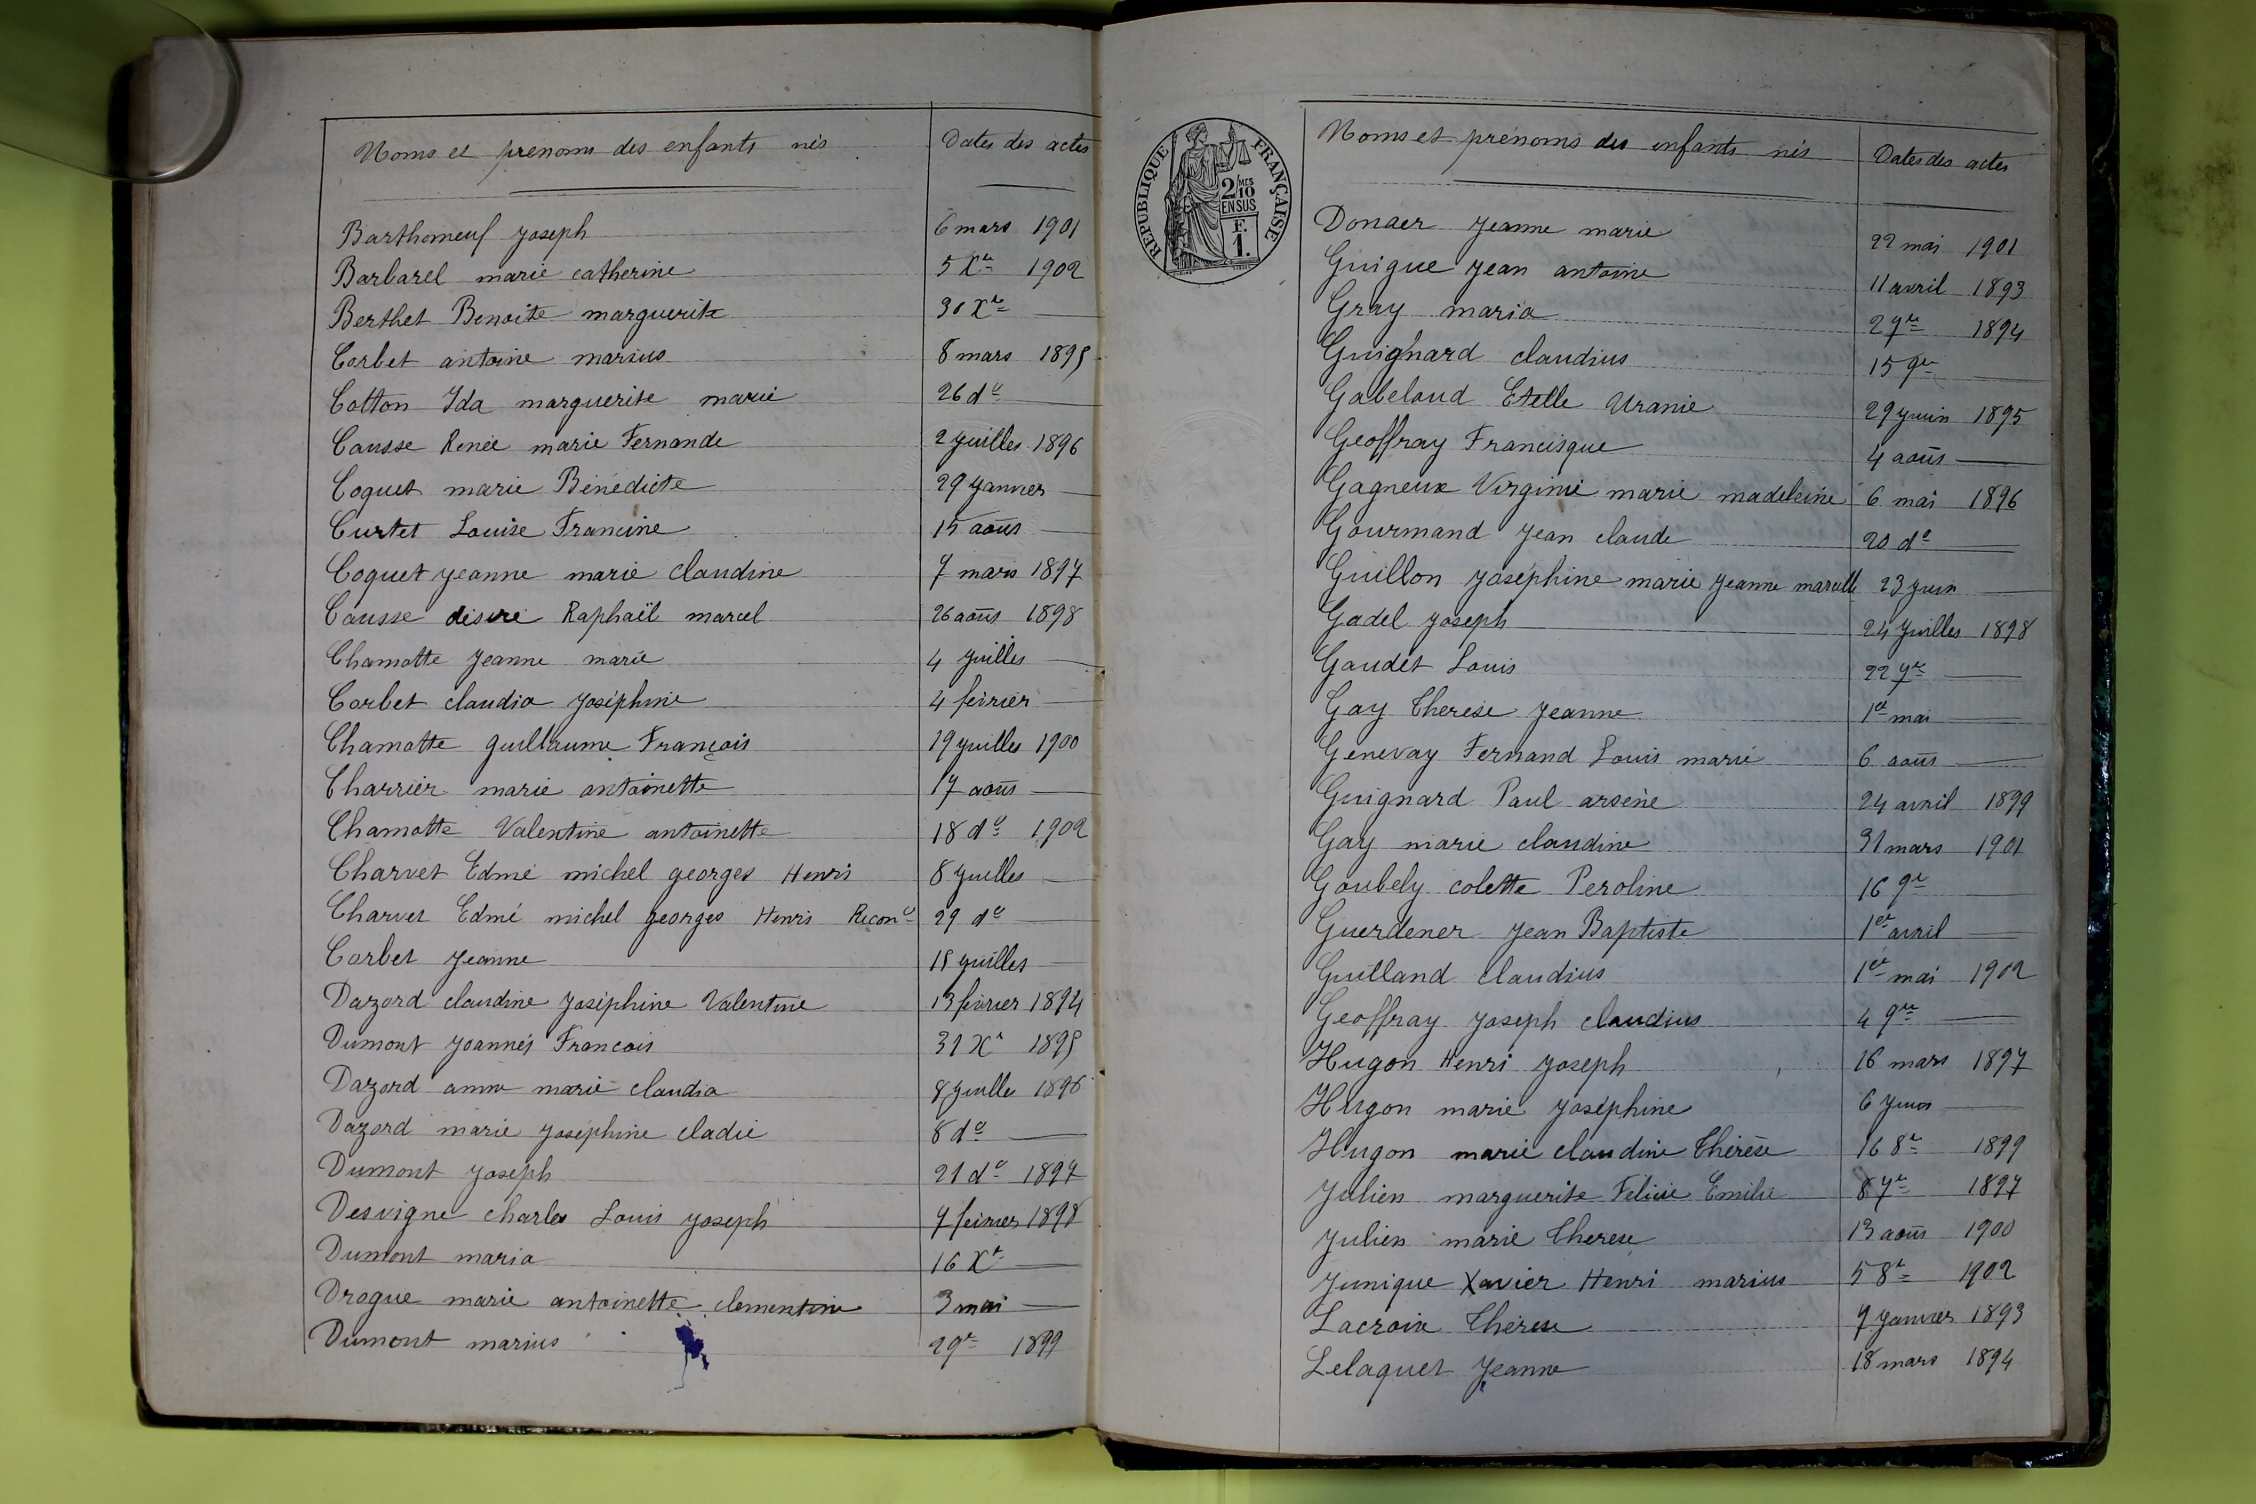 Noms et prénoms des enfants nés Dates des actes
Barthomeuf Joseph 6 mars 1901
Barbarel marie catherine 5 Xre 1902
Berthet Benoite marguerite 30 Xre —
Corbet antoine marius 8 mars 1895
Cotton Ida marguerite marie 26 do —
Causse Renée marie Fernande 2 juillet 1896
Coquet marie Bénédicte 29 Janvier —
Curtet Louise Francine 15 août —
Coquet Jeanne marie Claudine 7 mars 1897
Causse désiré Raphaël marcel 26 août 1898
Chamotte Jeanne marie 4 Juillet —
Corbet claudia Joséphine 4 février —
Chamotte guillaume François 19 juillet 1900
Charrier marie antoinette 17 août —
Chamotte Valentine antoinette 18 do 1902
Charvet Edmé michel georges Henri 8 juillet —
Charvet Edmé michel georges Henri Recon ce 29 do —
Corbet Jeanne 15 juillet —
Dazord claudine Joséphine Valentine 13 février 1894
Dumont Joannès Francois 31 Xre 1895
Dazord anna marie claudia 8 Juillet 1896
Dazord marie Joséphine cladie 8 do —
Dumont Joseph 21 do 1897
Desvigne charles Louis Joseph 7 février 1898
Dumont maria 16 Xre —
Drogue marie antoinette clementine 3 mai —
Dumont marius 2 9re 1899
RÉPUBLIQUE FRANÇAISE
2/10 MES
EN SUS
F.
1.
Noms et prénoms des enfants nés Dates des actes
Donaer Jeanne marie 22 mai 1901
Guigue Jean antoine 11 avril 1893
Gray maria 2 7re 1894
Guighard claudius 15 9re —
Gabeloud Etelle Uranie 29 juin 1895
Geoffray Francisque 4 août —
Gagneux Virginie marie madeleine 6 mai 1896
Gourmand Jean claude 20 do —
Guillon Joséphine marie Jeanne marcelle 23 juin —
Gadel Joseph 24 Juillet 1898
Gaudet Louis 22 7re —
Gay Therese Jeanne 1er mai —
Genevay Fernand Louis marie 6 août —
Guignard Paul arsène 24 avril 1899
Gay marie claudine 31 mars 1901
Goubely colette Peroline 16 9re —
Guerdener Jean Baptiste 1er avril —
Guilland claudius 1er mai 1902
Geoffray Joseph claudius 4 9re —
Hugon Henri Joseph 16 mars 1897
Hugon marie Joséphine 6 Juin —
Hugon marie claudine Thérèse 16 8re 1899
Julien marguerite Felicie Emilie 8 7re 1897
Julien marie Therese 13 août 1900
Junique Xavier Henri marius 5 8re 1902
Lacroix Therese 7 Janvier 1893
Lelaquet Jeanne 18 mars 1894